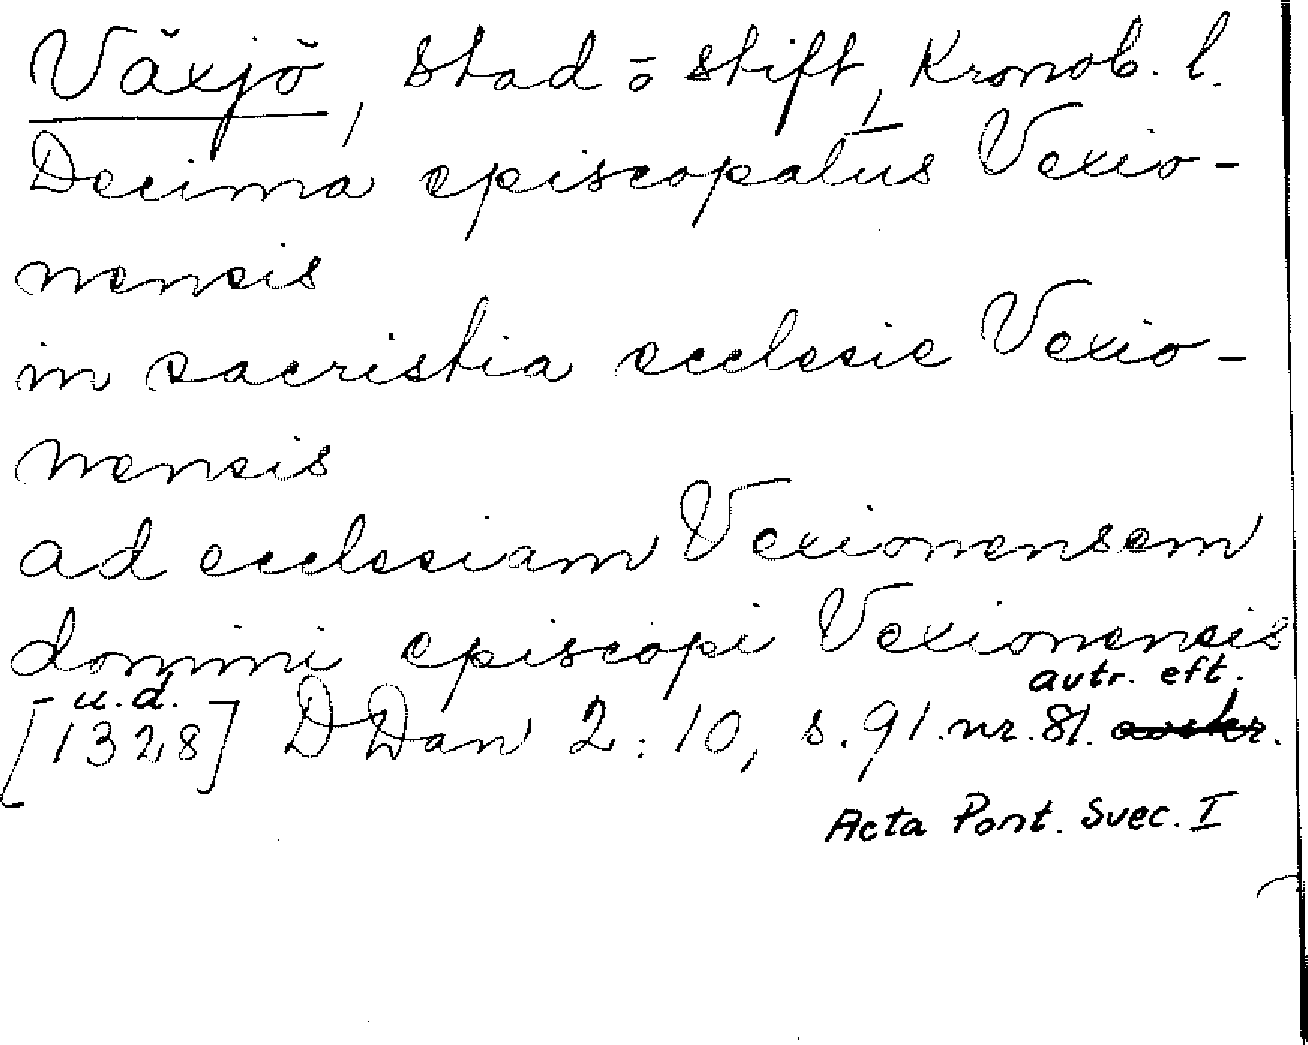 Växjö, stad o stift, Kronob. l.
Decima episcopatus Vexio-
nensis
in sacristia ecclesie Vexio-
nensis
ad ecclesiam Vexionensem
domini episcopi Vexionensis
u.d. autr. eft.
[1328] DDan 2:10, s. 91. nr. 81.
Acta Pont. Svec. I